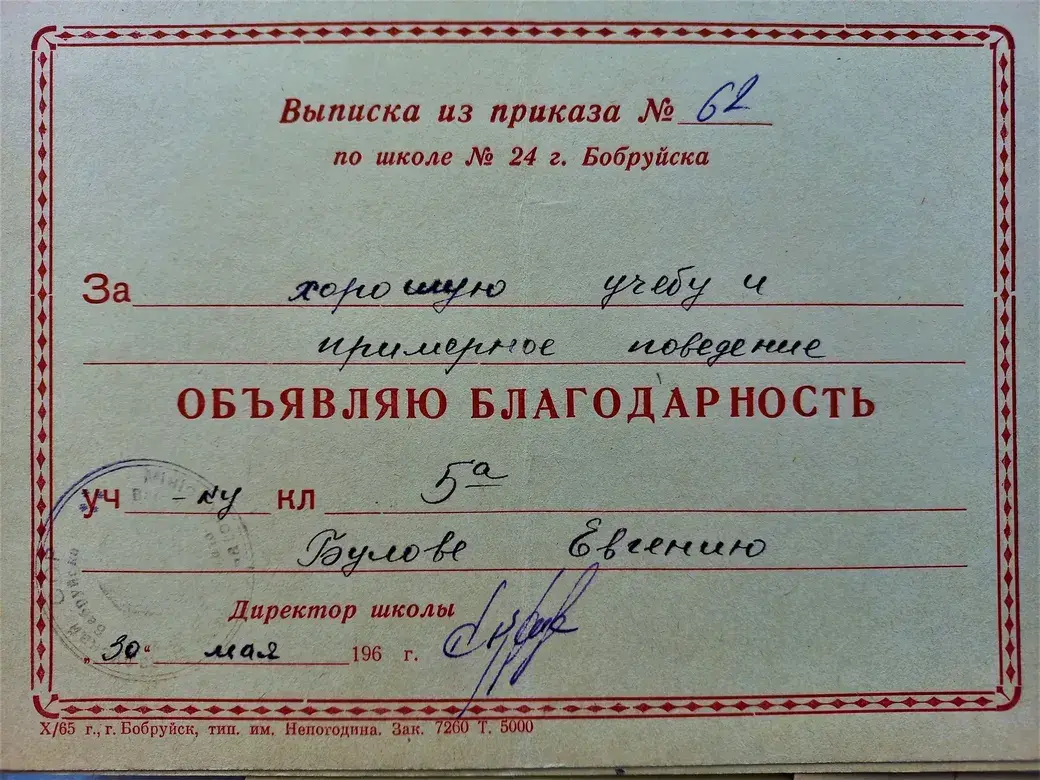 Выписка из приказа № 62
по школе № 24 г. Бобруйска
За хорошую учебу и
примерное поведение
ОБЪЯВЛЯЮ БЛАГОДАРНОСТЬ
уч -ку кл 5а
Булове Евгению
Директор школы
„30“ мая 196 г.
X/65 г., г. Бобруйск, тип. им. Непогодина. Зак. 7260 Т. 5000